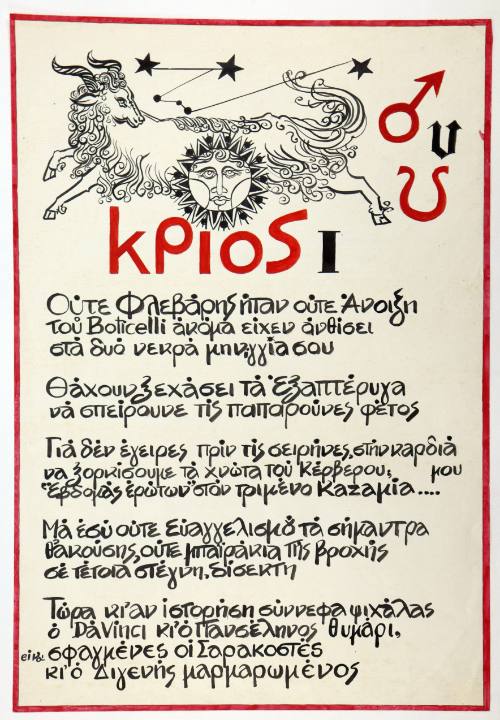 υ
κριος Ι
Ούτε Φλεβάρης ήταν ούτε Άνοιξη
τοῦ Boticelli ἀκόμα εἶχεν ἀνθίσει
στά δυό νεκρά μηνίγγια σου
Θἄχουν ξεχάσει τά Ἑξαπτέρυγα
νά σπείρουνε τίς παπαρούνες φέτος
Γιά δέν ἔγειρες πρίν τίς σειρῆνες στήν καρδιά
να ξορκίσουμε τά χνῶτα τοῦ Κέρβερου; μου
"ἑβδομάς ἐρώτων" στόν τριμένο Καζαμία....
Μά ἐσύ οὔτε Εὐαγγελισμό τά σήμαντρα
θ'ἀκούσης, οὔτε μπαϊράκια τῆς βροχῆς
σέ τέτοια στέγνη, δίσεκτη
Τώρα κι'ἄν ἱστορήση σύννεφα ψιχάλας
ὁ DaVinci κι'ὁ Πανσέληνος θυμάρι,
εἰν. σφαγμένες οἱ Σαρακοστές
κι'ὁ Διγενής μαρμαρωμένος